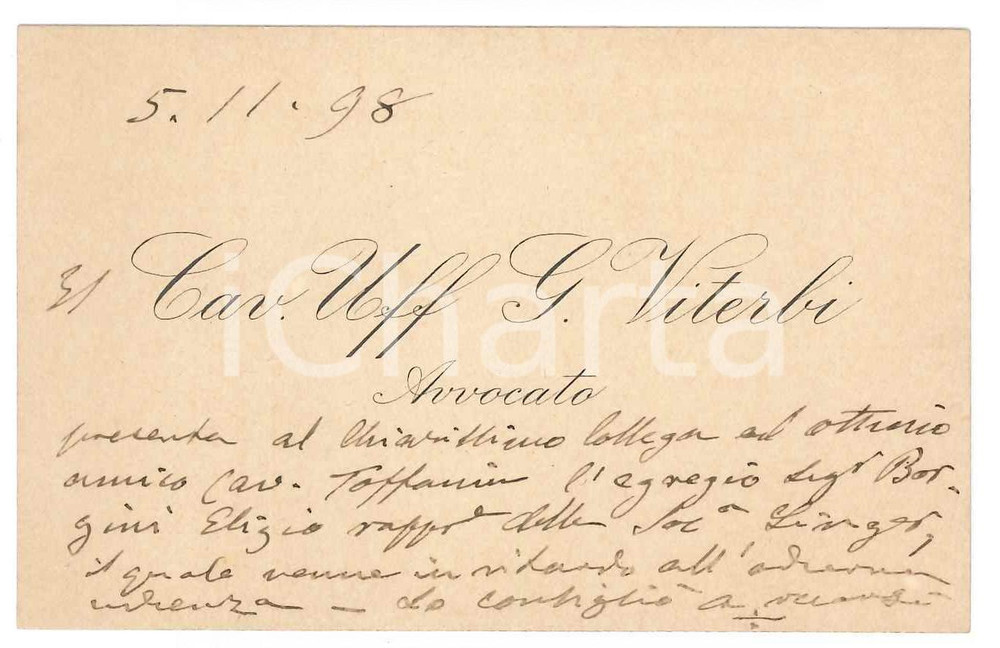 5. 11. 98
Cav. Uff G. Viterbi
Avvocato
presenta al chiarissimo Collega ed ottimo
amico Cav. Toffanin l'egregio Sigr Bor-
gini Eligio rappre della Soca Singer,
il quale venne in ritardo all'odierna
udienza – Lo consigliò a
iCharta